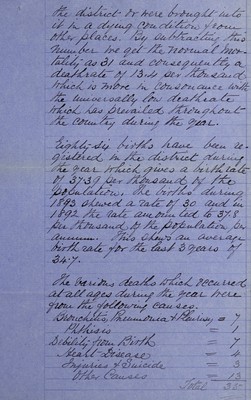 the district or were brought into
it in a dying condition from
other places. By subtracting this
number we get the normal mor-
tality as 31 and consequently a
deathrate of 13.4 per thousand
which is more in consonance with
the universally low deathrate
which has prevailed throughout
the country during the year.
Eighty-six births have been re-
gistered in the district during
the year which gives a birth rate
of 37.39 per thousand of the
population. The births during
1893 shewed a rate of 30 and in
1892 the rate amounted to 37.8
per thousand of the population per
annum. This shews an average
birth rate for the last 3 years of
34.7.
The various deaths which occurred
at all ages during the year were
from the following causes.
Bronchitis, Pneumonia & Pleurisy = 7
Phthisis = 1
Debility from Birth = 7
Heart Disease = 4
Injuries & Suicide = 3
Other Causes = 13
Total 35